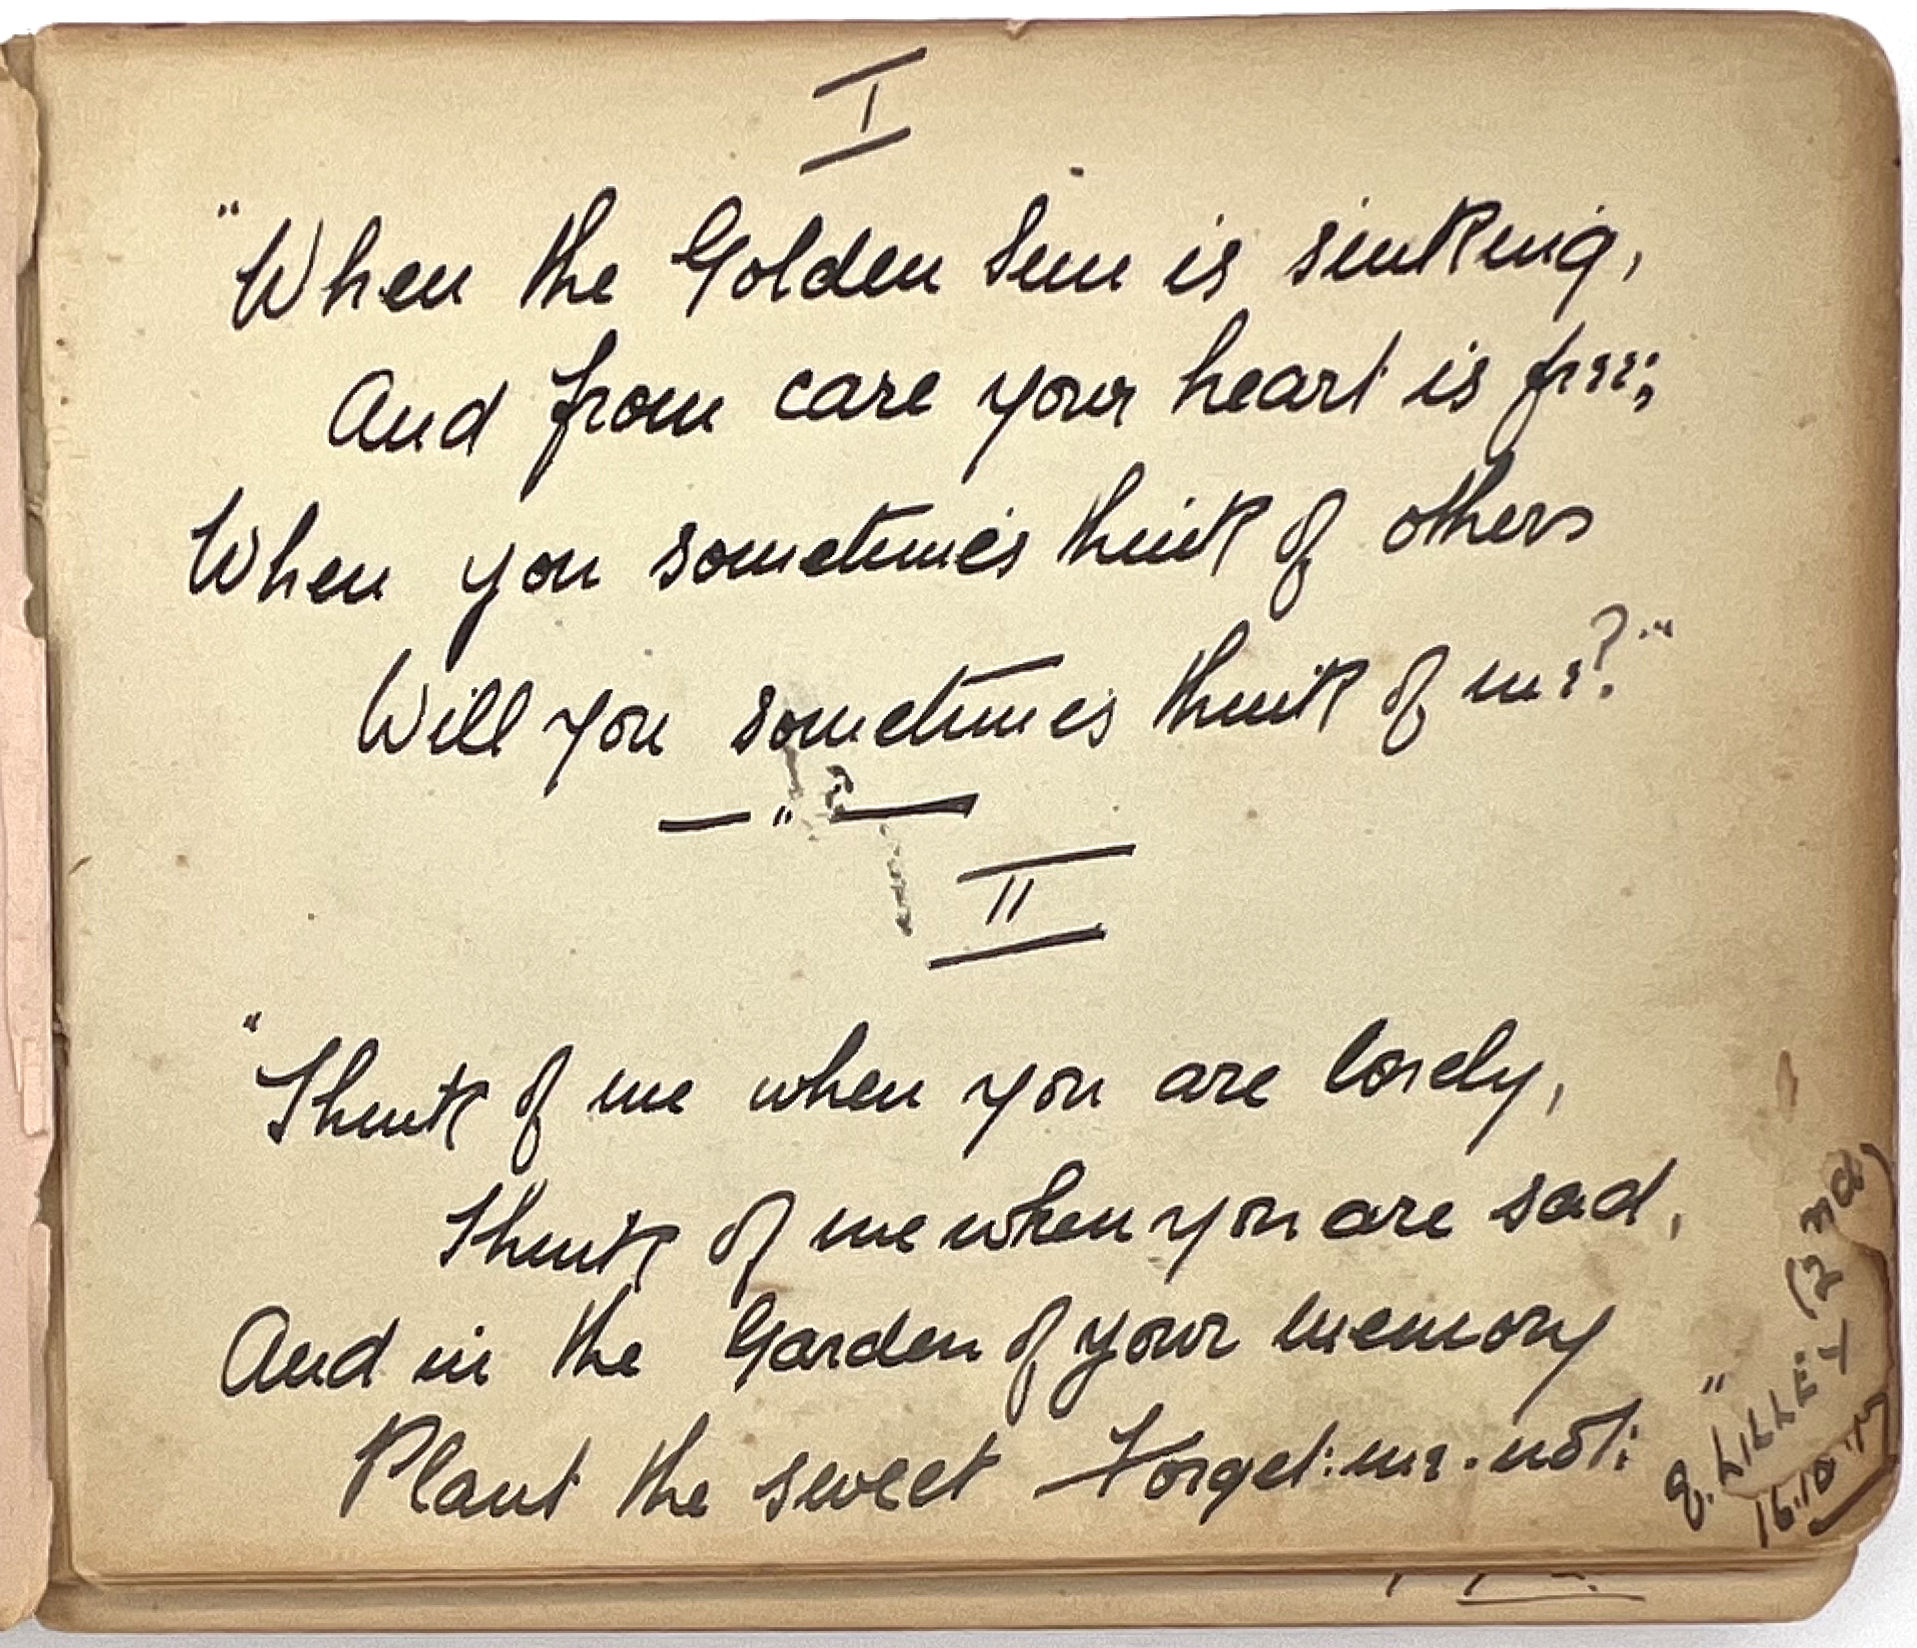 I
"When the Golden Sun is sinking,
And from care your heart is free;
When you sometimes think of others
Will you sometimes think of me?."
— " —
II
"Think of me when you are lonely,
Think of me when you are sad,
And in the Garden of your memory
Plant the sweet Forget-me-not:"
E. LILLEY (2nd)